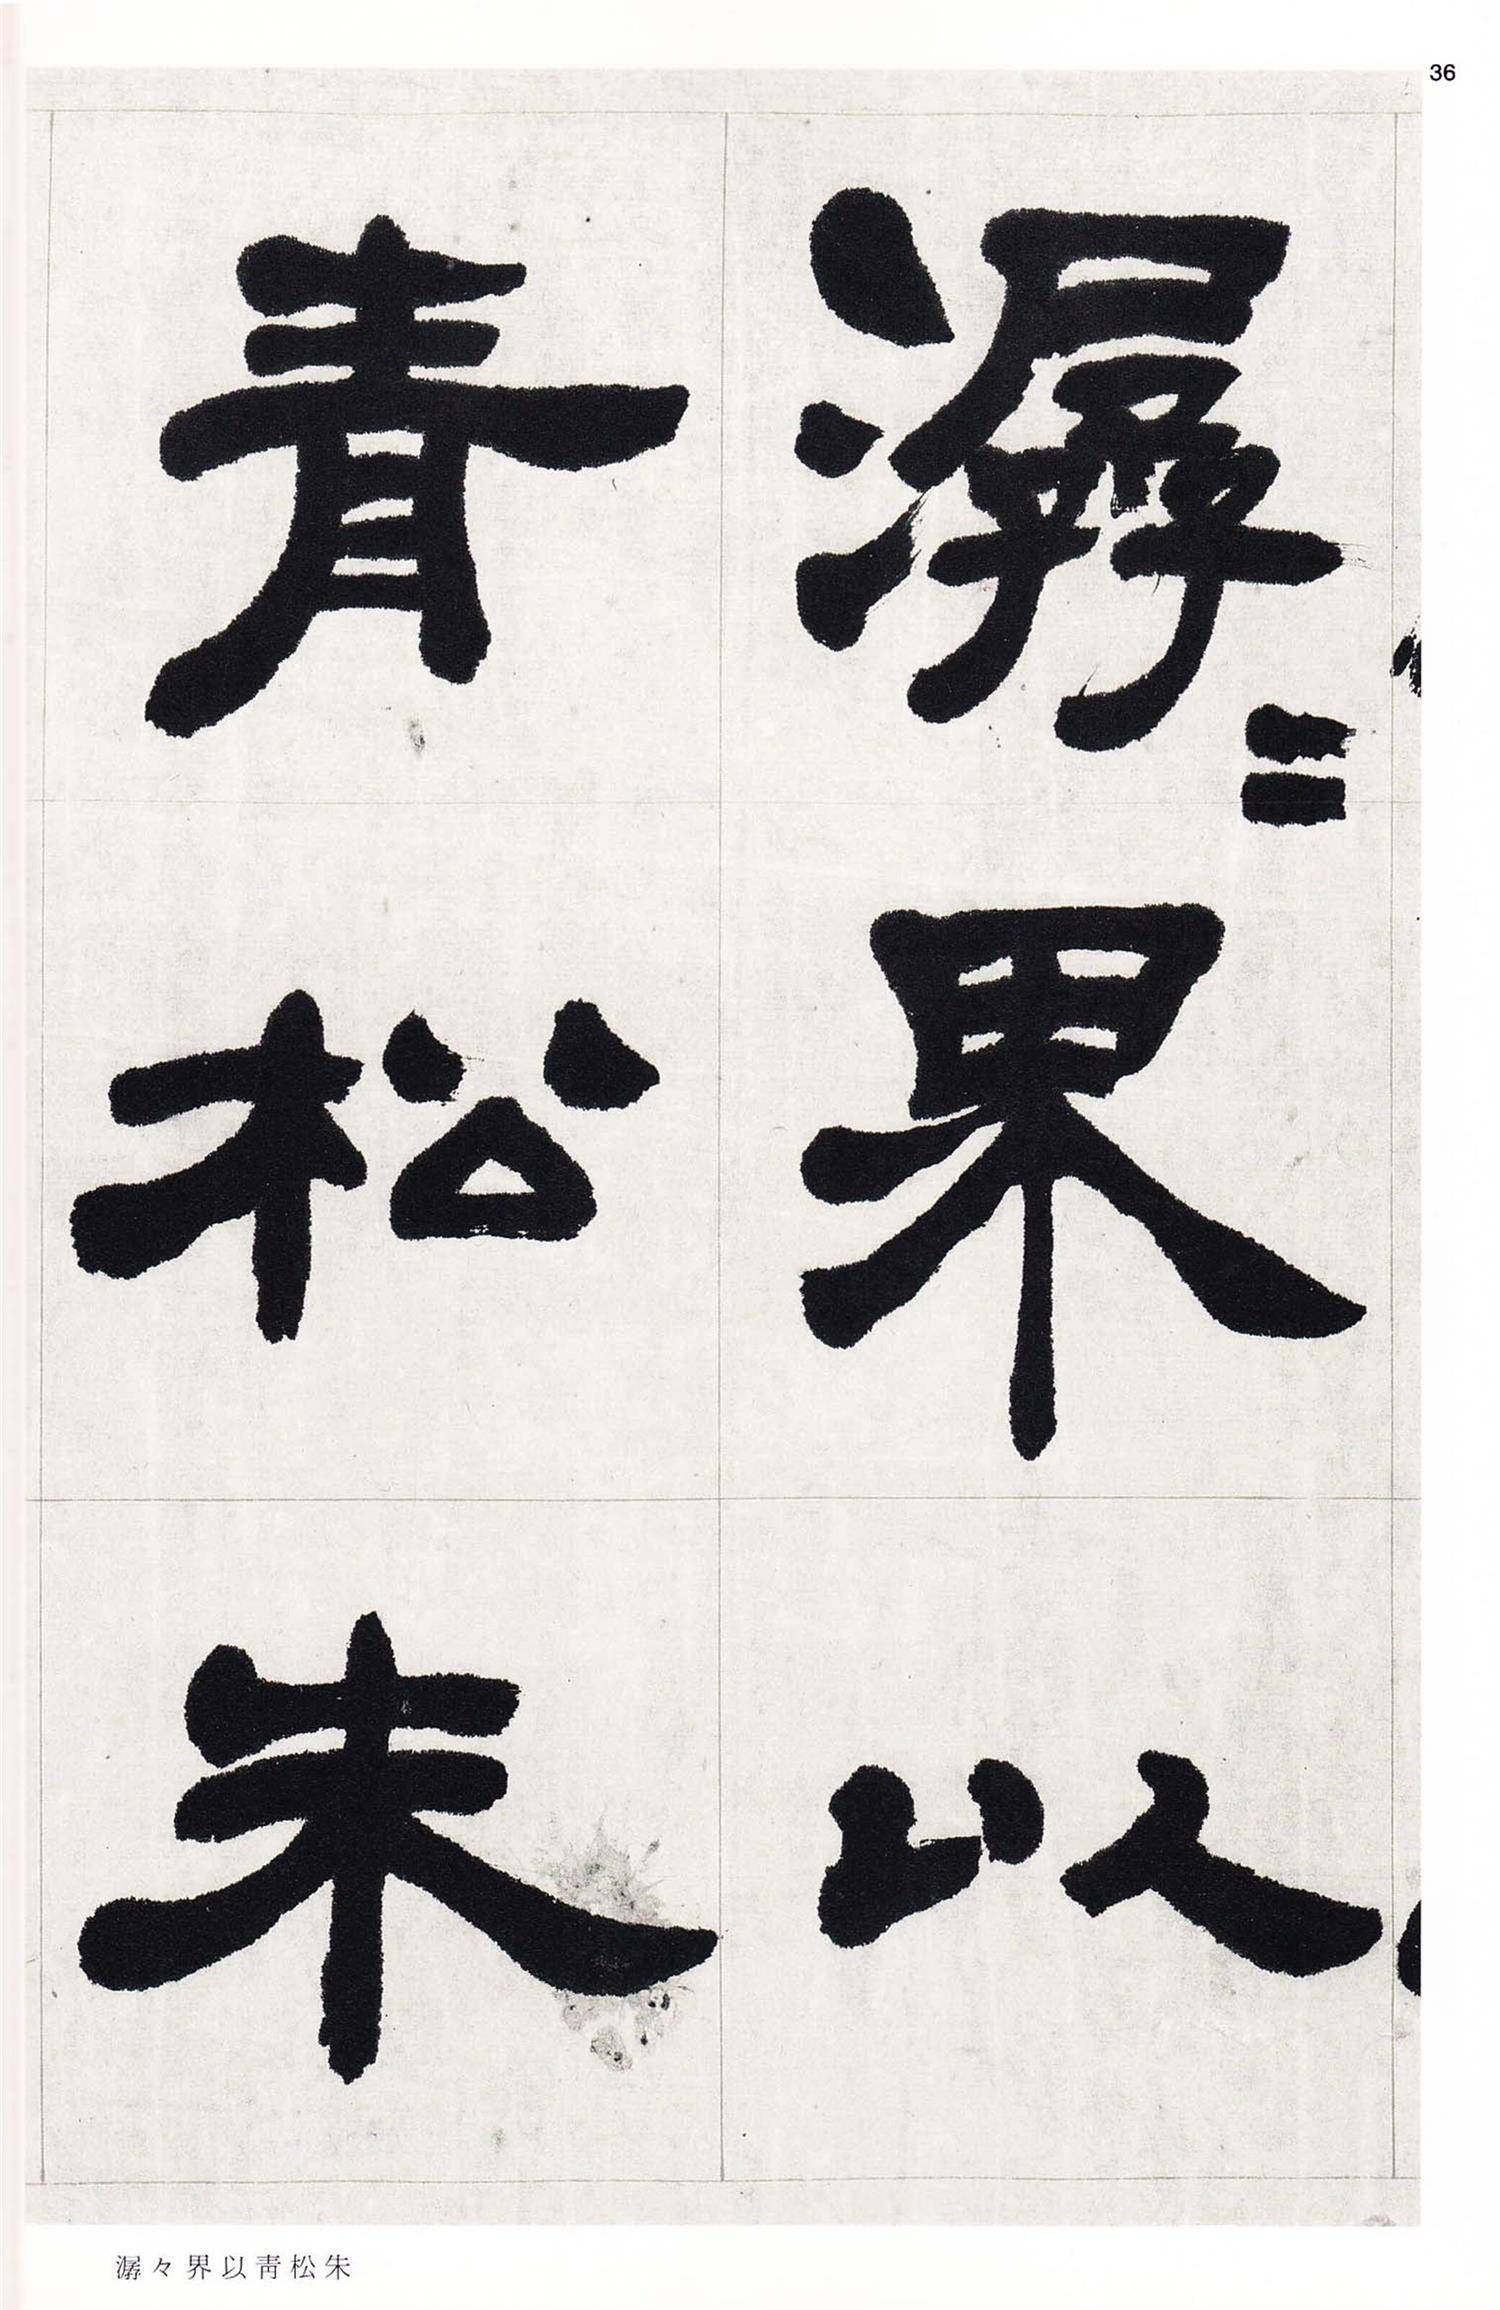 36
潺々界以
青松朱
潺々界以靑松朱